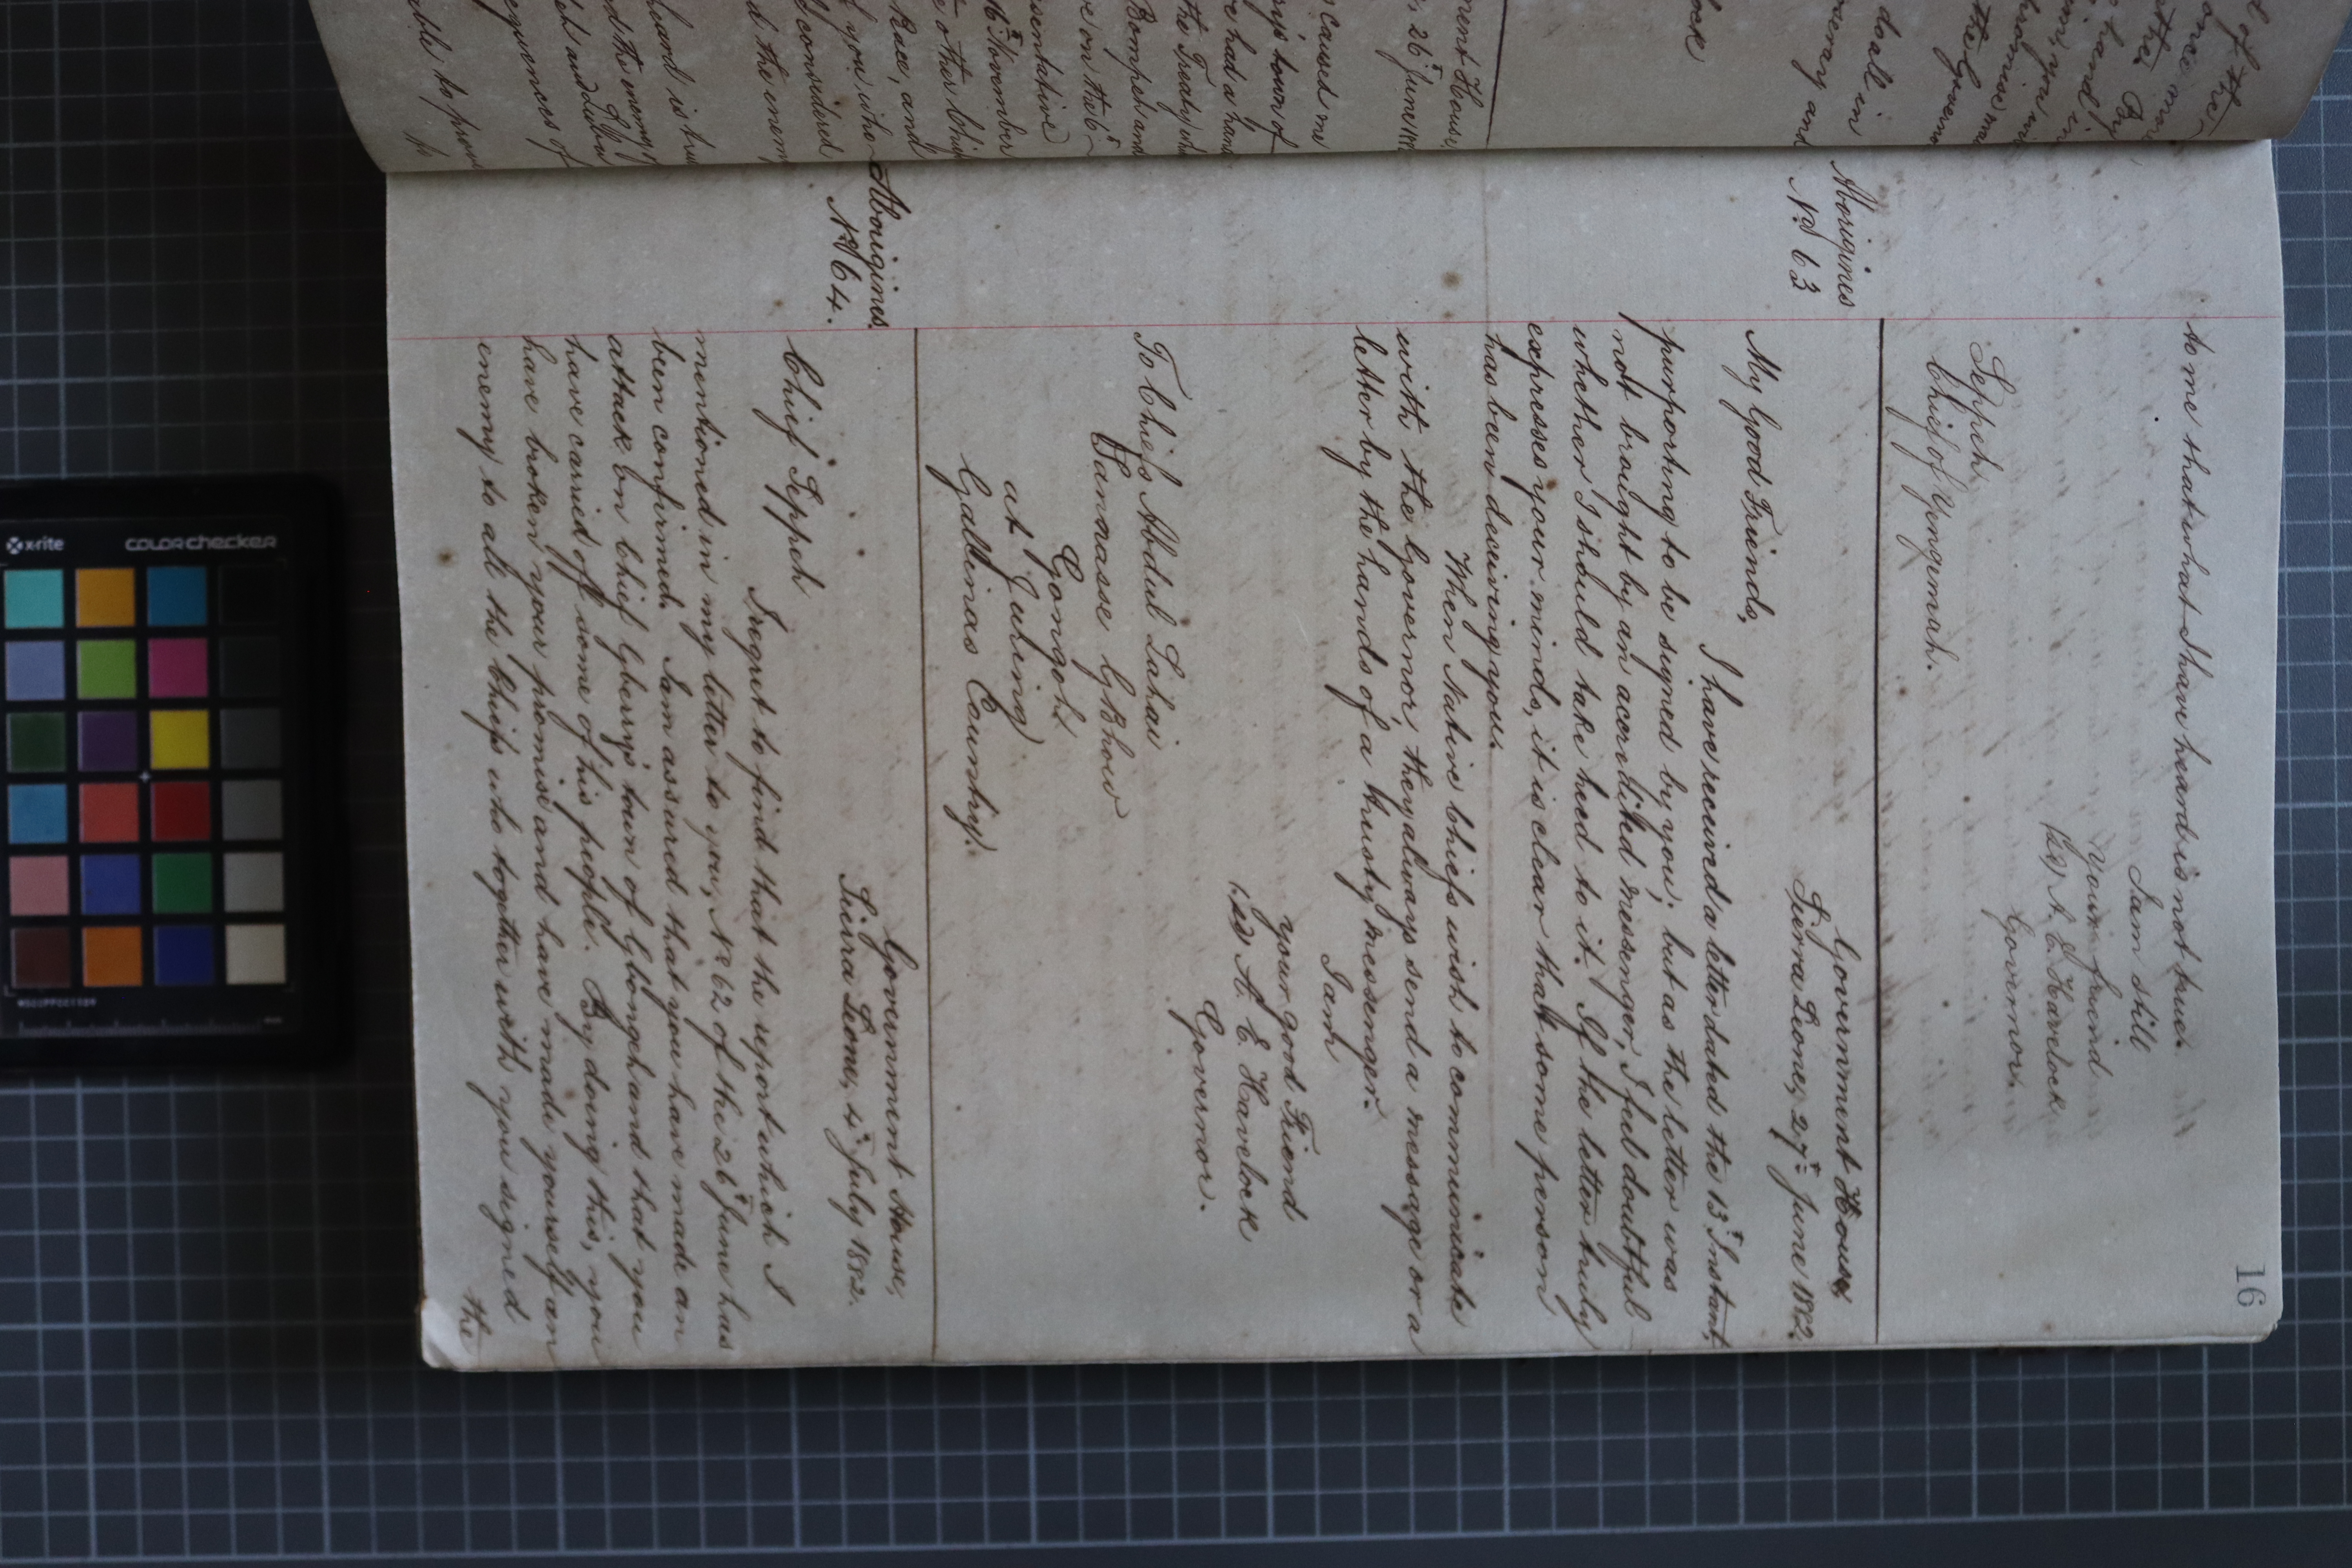 16
to me that what I have heard is not true.
I am still
Your friend
(sd) A. E. Havelock
Governor.
Seppeh
Chief of Yongemah.
Aborigines
No 63
Government House,
Sierra Leone, 27th June 1882.
My Good Friends,
I have received a letter dated the 13th Instant,
purporting to be signed by you; but as the letter was
not brought by an accredited messenger, I feel doubtful
whether I should take heed to it. If the letter truly
expresses your minds, it is clear that some person
has been deceiving you.
When Native Chiefs wish to communicate
with the Governor, they always send a message or a
letter by the hands of a trusty messenger.
I am
your good Friend
(sd) A. E. Havelock
Governor.
To Chiefs Abdul Lahai
Gbow
Gongoh
at Juring
Gallinas Country.
Aborigines
No 64.
Government House,
Sierra Leone, 4th July 1882.
Chief Seppeh
I regret to find that the report which I
mentioned in my letter to you, No 62 of the 26th June has
been confirmed. I am assured that you have made an
attack on Chief Gberry's town of Gbongeh and that you
have carried off some of his people. By doing this, you
have broken your promise and have made yourself an
enemy to all the Chiefs who together with you signed
the
ment House,
26th June 188
caused me
town of
had a hand
the Treaty
Bompeh and
on the 6th
November
other Chiefs
and
considered
the enemy
heard is true
able to prove
to
lock
doall in
and
the Governor
of the
x-rite
colorchecker